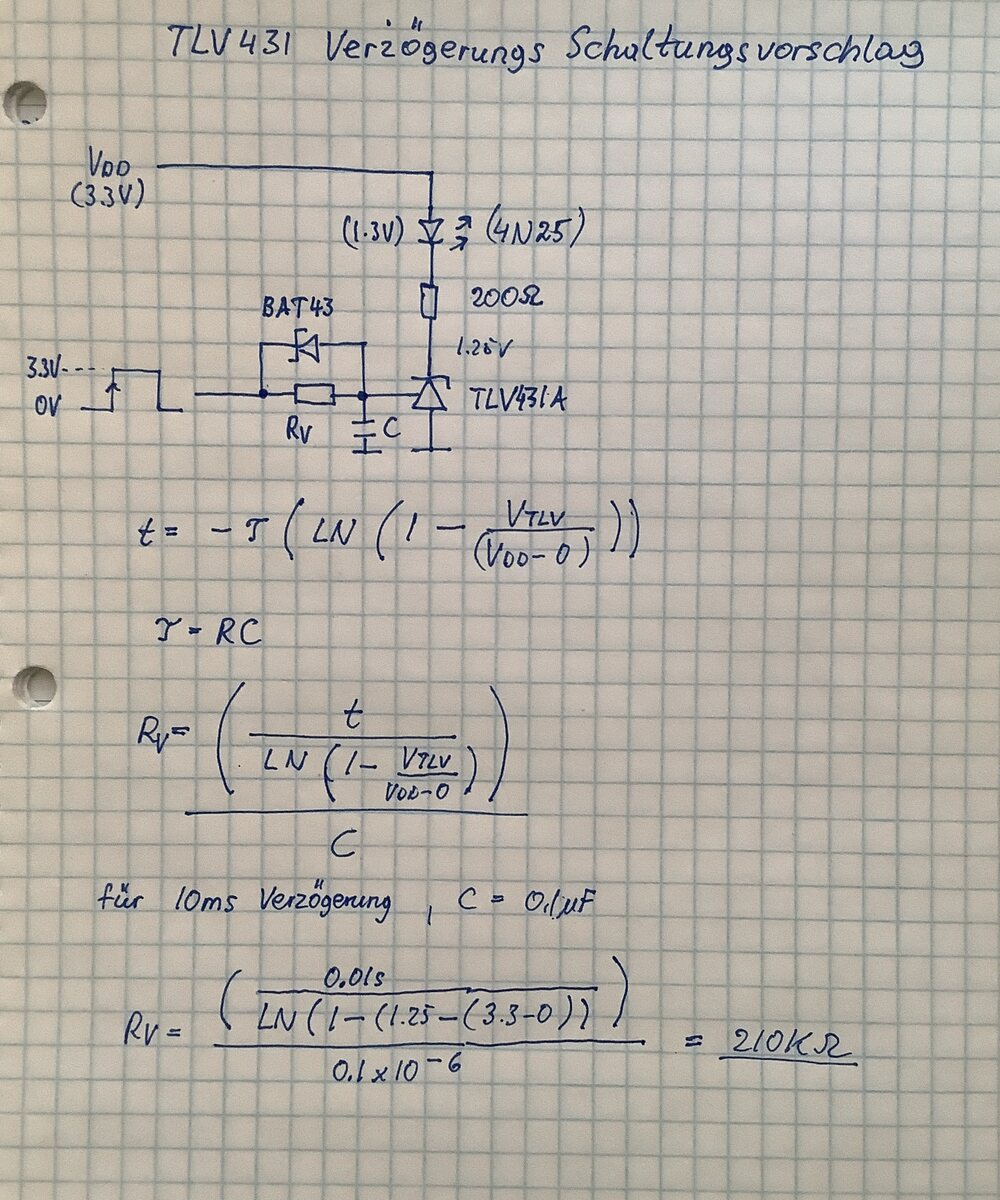 TLV431 Verzögerungs Schaltungsvorschlag
VDD
(3.3V)
(1.3V) (4N25)
200Ω
BAT43
1.25V
3.3V
0V
TLV431A
RV C
t = - T ( LN ( 1 - VTLV / (VDD - 0) ) )
T = RC
RV = ( t / LN ( 1 - VTLV / VDD - 0 ) ) / C
für 10ms Verzögerung , C = 0,1µF
RV = ( 0.01s / LN ( 1 - (1.25 - (3.3 - 0)) ) / 0.1 x 10^-6 = 210KΩ